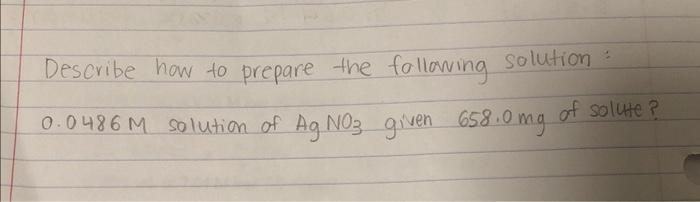 Describe how to prepare the following solution :
0.0486M solution of AgNO3 given 658.0mg of solute?